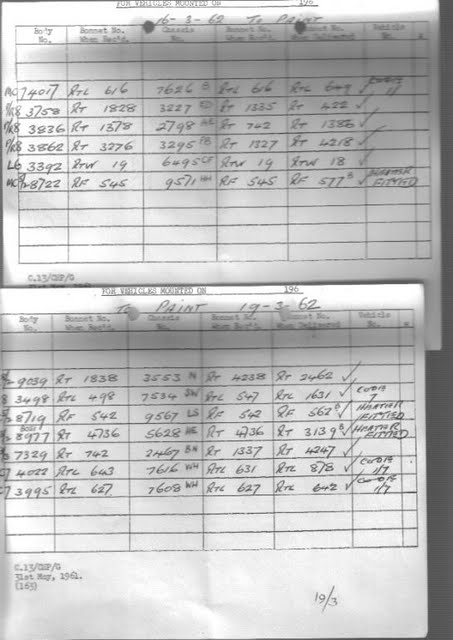 FOR VEHICLES MOUNTED ON 196
16-3-62 To PAINT
Body No. Bonnet No. When Rec'd. Chassis No. Bonnet No. When Rec'd. Bonnet No. When Delivered Vehicle No.
7401 RTL 616 7626 RTL 616 RTL 649 ✓
P/R8 3758 RT 1828 3227 RT 1335 RT 422 ✓
P/R8 3836 RT 1378 2798 RT 742 RT 1386 ✓
P/R8 3862 RT 3276 3295 RT 1327 RT 4218 ✓
L6 3392 RTW 19 6495 CF RTW 19 RTW 18 ✓
8722 RF 545 9571 WH RF 545 RF 577 B ✓ HEATER FITTED
C.13/CHF/G
FOR VEHICLES MOUNTED ON 196
To PAINT 19-3-62
Body No. Bonnet No. When Rec'd. Chassis No. Bonnet No. When Rec'd. Bonnet No. When Delivered Vehicle No.
9039 RT 1838 3553 RT 4238 RT 2462 ✓
3498 RTL 498 7534 RTL 547 RTL 1631 ✓
8719 RF 542 9567 LS RF 542 RF 562 B ✓ HEATER FITTED
RT 4736 5628 RT 4736 RT 3139 B ✓ HEATER FITTED
7329 RT 742 2467 RT 1337 RT 4247 ✓
4022 RTL 643 7616 WH RTL 631 RTL 878 ✓
3995 RTL 627 7608 WH RTL 627 RTL 642 ✓
C.13/CHF/G
31st May, 1961.
(163)
19/3